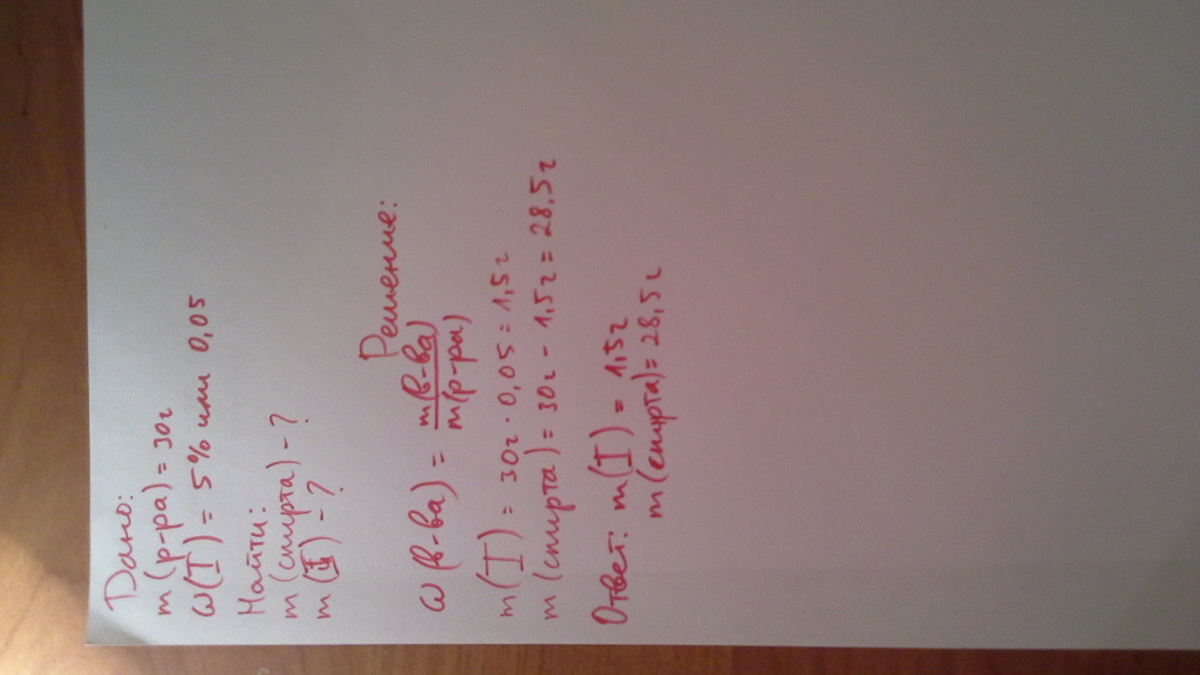 Дано:
m(р-ра) = 30г
ω(I) = 5% или 0,05
Найти:
m(спирта) - ?
m(I) - ?
Решение:
ω(в-ва) = m(в-ва)
m(р-ра)
m(I) = 30г · 0,05 = 1,5г
m(спирта) = 30г - 1,5г = 28,5г
Ответ: m(I) = 1,5г
m(спирта) = 28,5г